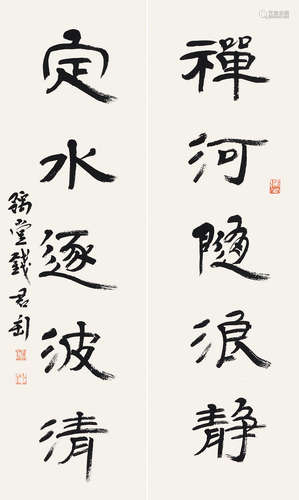 禪河隨浪静
定水逐波清
豫堂錢君匋